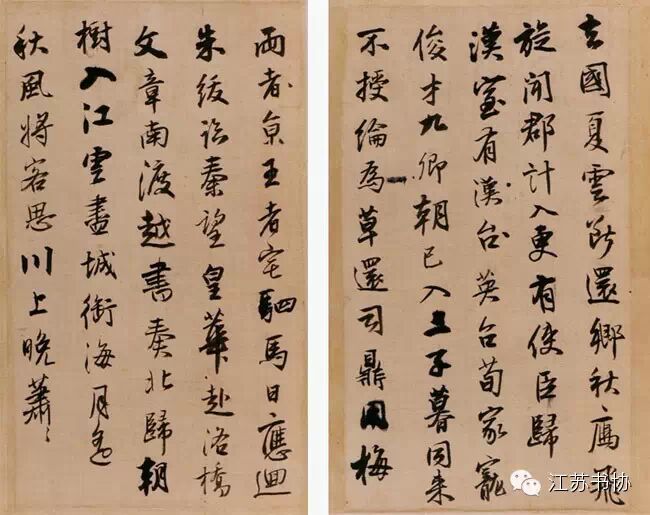 去國夏雲断還鄉秋鴈飛
旋聞郡計入更有使臣歸
漢室有漢台英台荀家寵
俊才九卿朝已入三子暮同来
不授綸為草還司鼎用梅
兩者京王者宅駟馬日應迴
朱紱臨秦望皇華赴洛橋
文章南渡越書奏北歸朝
樹入江雲盡城銜海月遙
秋風將客思川上晚蕭〻
江苏书协